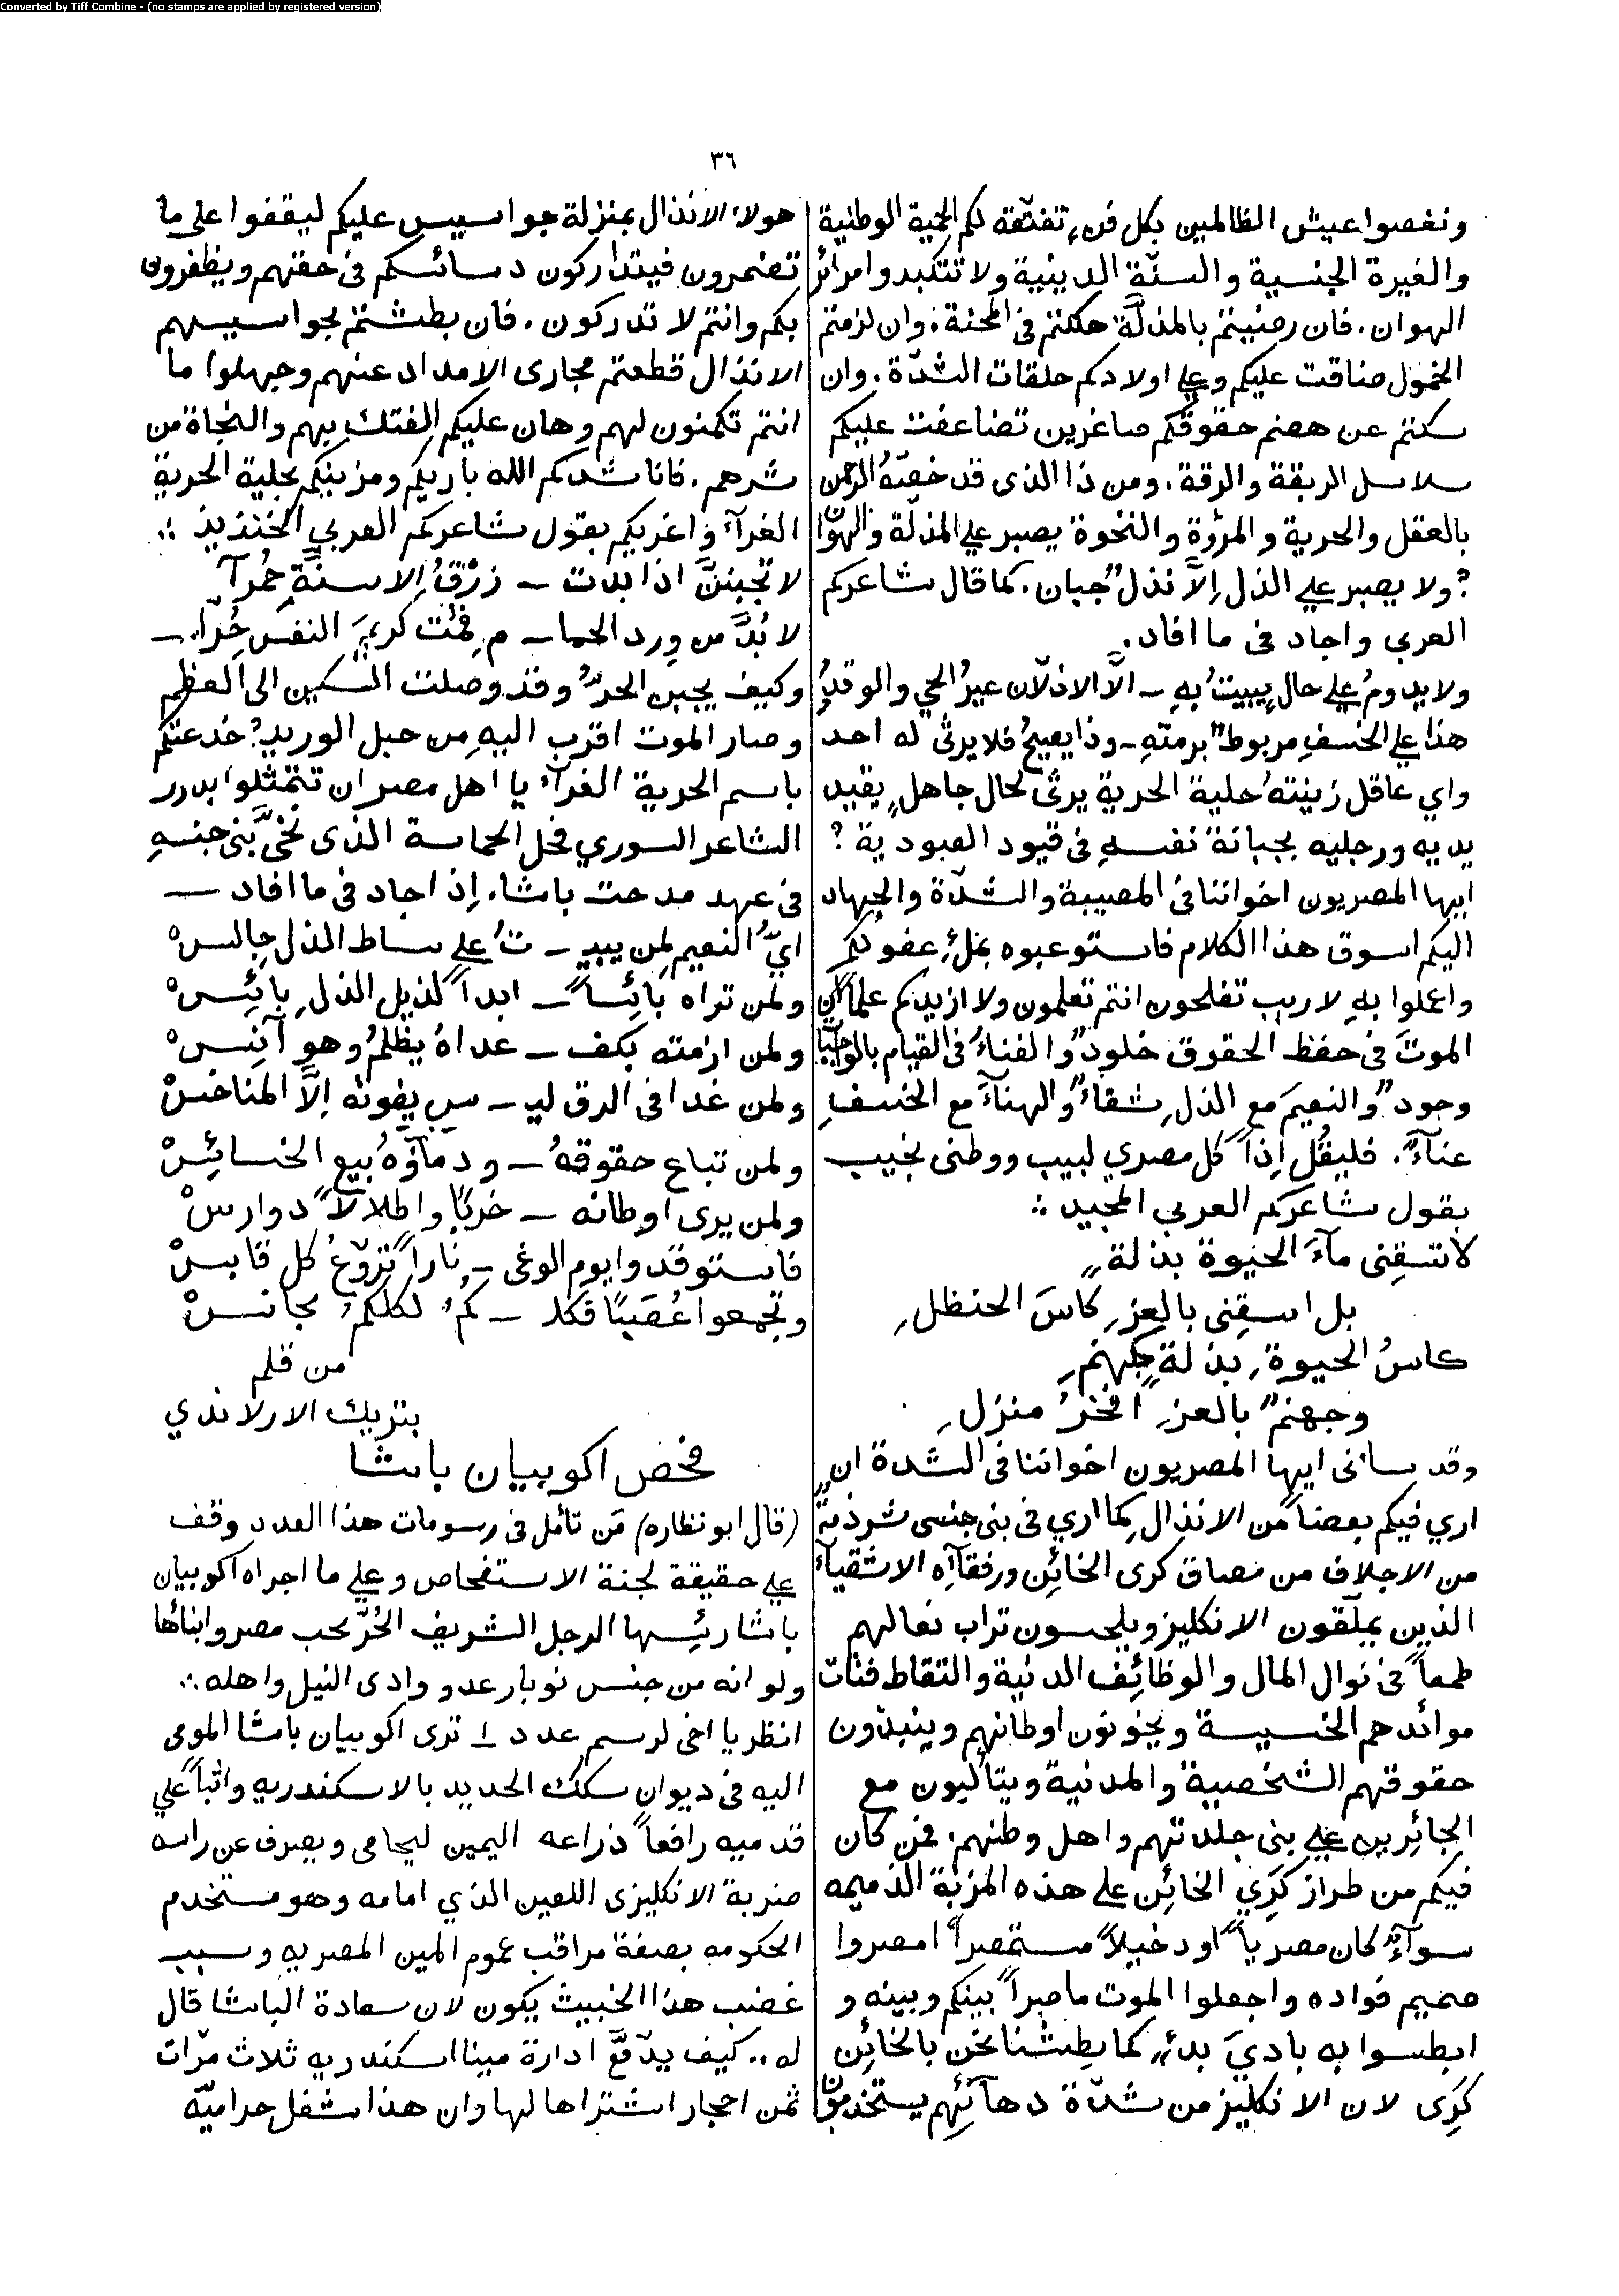 Converted by Tiff Combine - (no stamps are applied by registered version)
٣٦
ونغصوا عيش الظالمين بكل فنٍ تفتّقه لكم الحمية الوطنية
والغيرة الجنسية والسنّة الدينية ولا تتكبدوا مرائر
الهوان. فان رضيتم بالمذلّة هلكتم فى المحنة. وان لزمتم
الخمول ضاقت عليكم وعلي اولادكم حلقات الشدّة. وان
سكتم عن هضم حقوقكم صاغرين تضاعفت عليكم
سلاسل الربقة والرقة. ومن ذا الذى قد خصّهُ الرحمن
بالعقل والحرية والمرؤة والنخوة يصبر علي المذلّة والهوان
؟ ولا يصبر علي الذل اِلاَّ نذلٌ جبان. كما قال شاعركم
العربي واجاد فى ما افاد.
ولا يدومُ علي حالٍ يبيتُ بهِ – الاَّ الاذلّان عيرُ الحي والوتدُ
هذا علي الخسفِ مربوطٌ برمتهِ – وذا يصيحُ فلا يرثى له احد
واي عاقل زينتهُ حلية الحرية يرثى لحال جاهلٍ يقيد
يديه ورجليه بجبانة نفسهِ فى قيود العبودية ؟
ايها المصريون اخواننا فى المصيبة والشدّة والجهاد
اليكم اسوق هذا الكلام فاستوعبوه بملءِ عقولكم
واعملوا بهِ لا ريب تفلحون انتم تعلمون ولا ازيدكم علماً ان
الموتَ فى حفظ الحقوق خلودٌ والفناءُ فى القيام بالواجبات
وجودٌ والنعيمَ مع الذلِ شقاءٌ والهناءَ مع الخسفِ
عناءٌ. فليقُل اِذاً كل مصري لبيب ووطنى نجيب
بقول شاعركم العربي المجيد ∴
لا تسقِنى ماءَ الحيوة بذلةٍ
بل اسقِنى بالعزِ كاسَ الحنظلِ
كاسُ الحيوةِ بذلةٍ كجهنمٍ
وجهنمٌ بالعزِ افخرُ منزلِ
وقد ساٴنى ايها المصريون اخواننا فى الشدة ان
اري فيكم بعضاً من الانذال كما اري فى بنى جنسى شرذمةً
من الاجلاف من مصاف كرى الخائِن ورفقآئِه الاشقيآءِ
الذين يملّقون الانكليز ويلحسون تراب نعالهم
طمعاً فى نوال المال والوظائِف الدنية والتقاط فتات
موائدهم الخسيسة ويخونون اوطانهم وينبذون
حقوقهم الشخصية والمدنية ويتاٴلبون مع
الجائِرين علي بنى جلدتهم واهل وطنهم. فمن كان
فيكم من طراز كَرَي الخائِن على هذه المزية الذميمه
سوآءٌ كان مصرياً او دخيلاً مستمصراً امصروا
صميم فواده واجعلوا الموت ماصراً بينكم وبينه و
ابطسوا به باديَ بدءٍ كما بطشنا نحن بالخائِن
كَرَى لان الانكليز من شدّة دهآئِهم يستخدمون
هولاء الانذال بمنزلة جواسيس عليكم ليقفوا على ما
تضمرون فيتداركون دسائسكم فى حقهم ويظفرون
بكم وانتم لا تدركون. فان بطشتم بجواسيسهم
الانذال قطعتم مجارى الامداد عنهم وجهلوا ما
انتم تكمنون لهم وهان عليكم الفتك بهم والنجاة من
شرهم. فاناشدكم الله باريكم ومزينكم بحلية الحرية
الغرآءِ واغريكم بقول شاعركم العربي الخنذيذ ∴
لا تجبننَّ اذا بدت – زرْقُ الاسنَّةِ حُمرآ
لا بُدَّ من وِرد الحما – م فمُت كريمَ النفسِ حُرّا –
وكيف يجبن الحرُّ وقد وصلت السكين الى العظم
وصار الموت اقرب اليهِ من حبل الوريد؟ خدعتكم
باسم الحرية الغرآءِ يا اهل مصر ان تتمثلوا بدرر
الشاعر السوري فحل الحماسة الذى نخَّى بنى جنسهِ
فى عهد مدحت باشا. اِذ اجاد فى ما افاد —
ايُّ النعيم لمن يبيـ – تُ علي بساط الذل جالسْ
ولمن تراه بائِساً – ابداً لذيل الذلِ بائِسْ
ولمن ازمته بكف – عداهُ يظلمُ وهو آنِسْ
ولمن غدا فى الرق ليـ – س يفوتهُ اِلاَّ المناخسْ
ولمن تباع حقوقهُ – ودمآؤُهُ بيع الخسائِسْ
ولمن يرى اوطانه – خربًا واطلالاً دوارسْ
فاستوقدوا يوم الوغى – ناراً تروّعُ كل قابسْ
وتجمعوا عُصَبًا فكلـ – كمُ لكلكمُ مجانسْ
من قلم
بتريك الارلاندي
فحص اكوبيان باشا
(قال ابو نظاره) مَن تاٴمل فى رسومات هذا العدد وقف
علي حقيقة لجنة الاستفحاص وعلي ما اجراه اكوبيان
باشا رئِيسها الرجل الشريف الحُرّ محب مصر وابنائها
ولو انه من جنس نوبار عدو وادى النيل واهله ∴
انظر يا اخى لرسم عدد ١ ترى اكوبيان باشا المومى
اليه فى ديوان سكك الحديد بالاسكندريه واثباً علي
قدميه رافعاً ذراعه اليمين ليحامى ويصرف عن راسه
ضربة الانكليزى اللعين الذي امامه وهو مستخدم
الحكومه بصفة مراقب عموم المين المصريه وسبب
غضب هذا الخبيث يكون لان سعادة الباشا قال
له .. كيف يدفّع ادارة مينا اسكندريه ثلاث مرّات
ثمن احجار اشتراها لها وان هذا شغل حراميّه